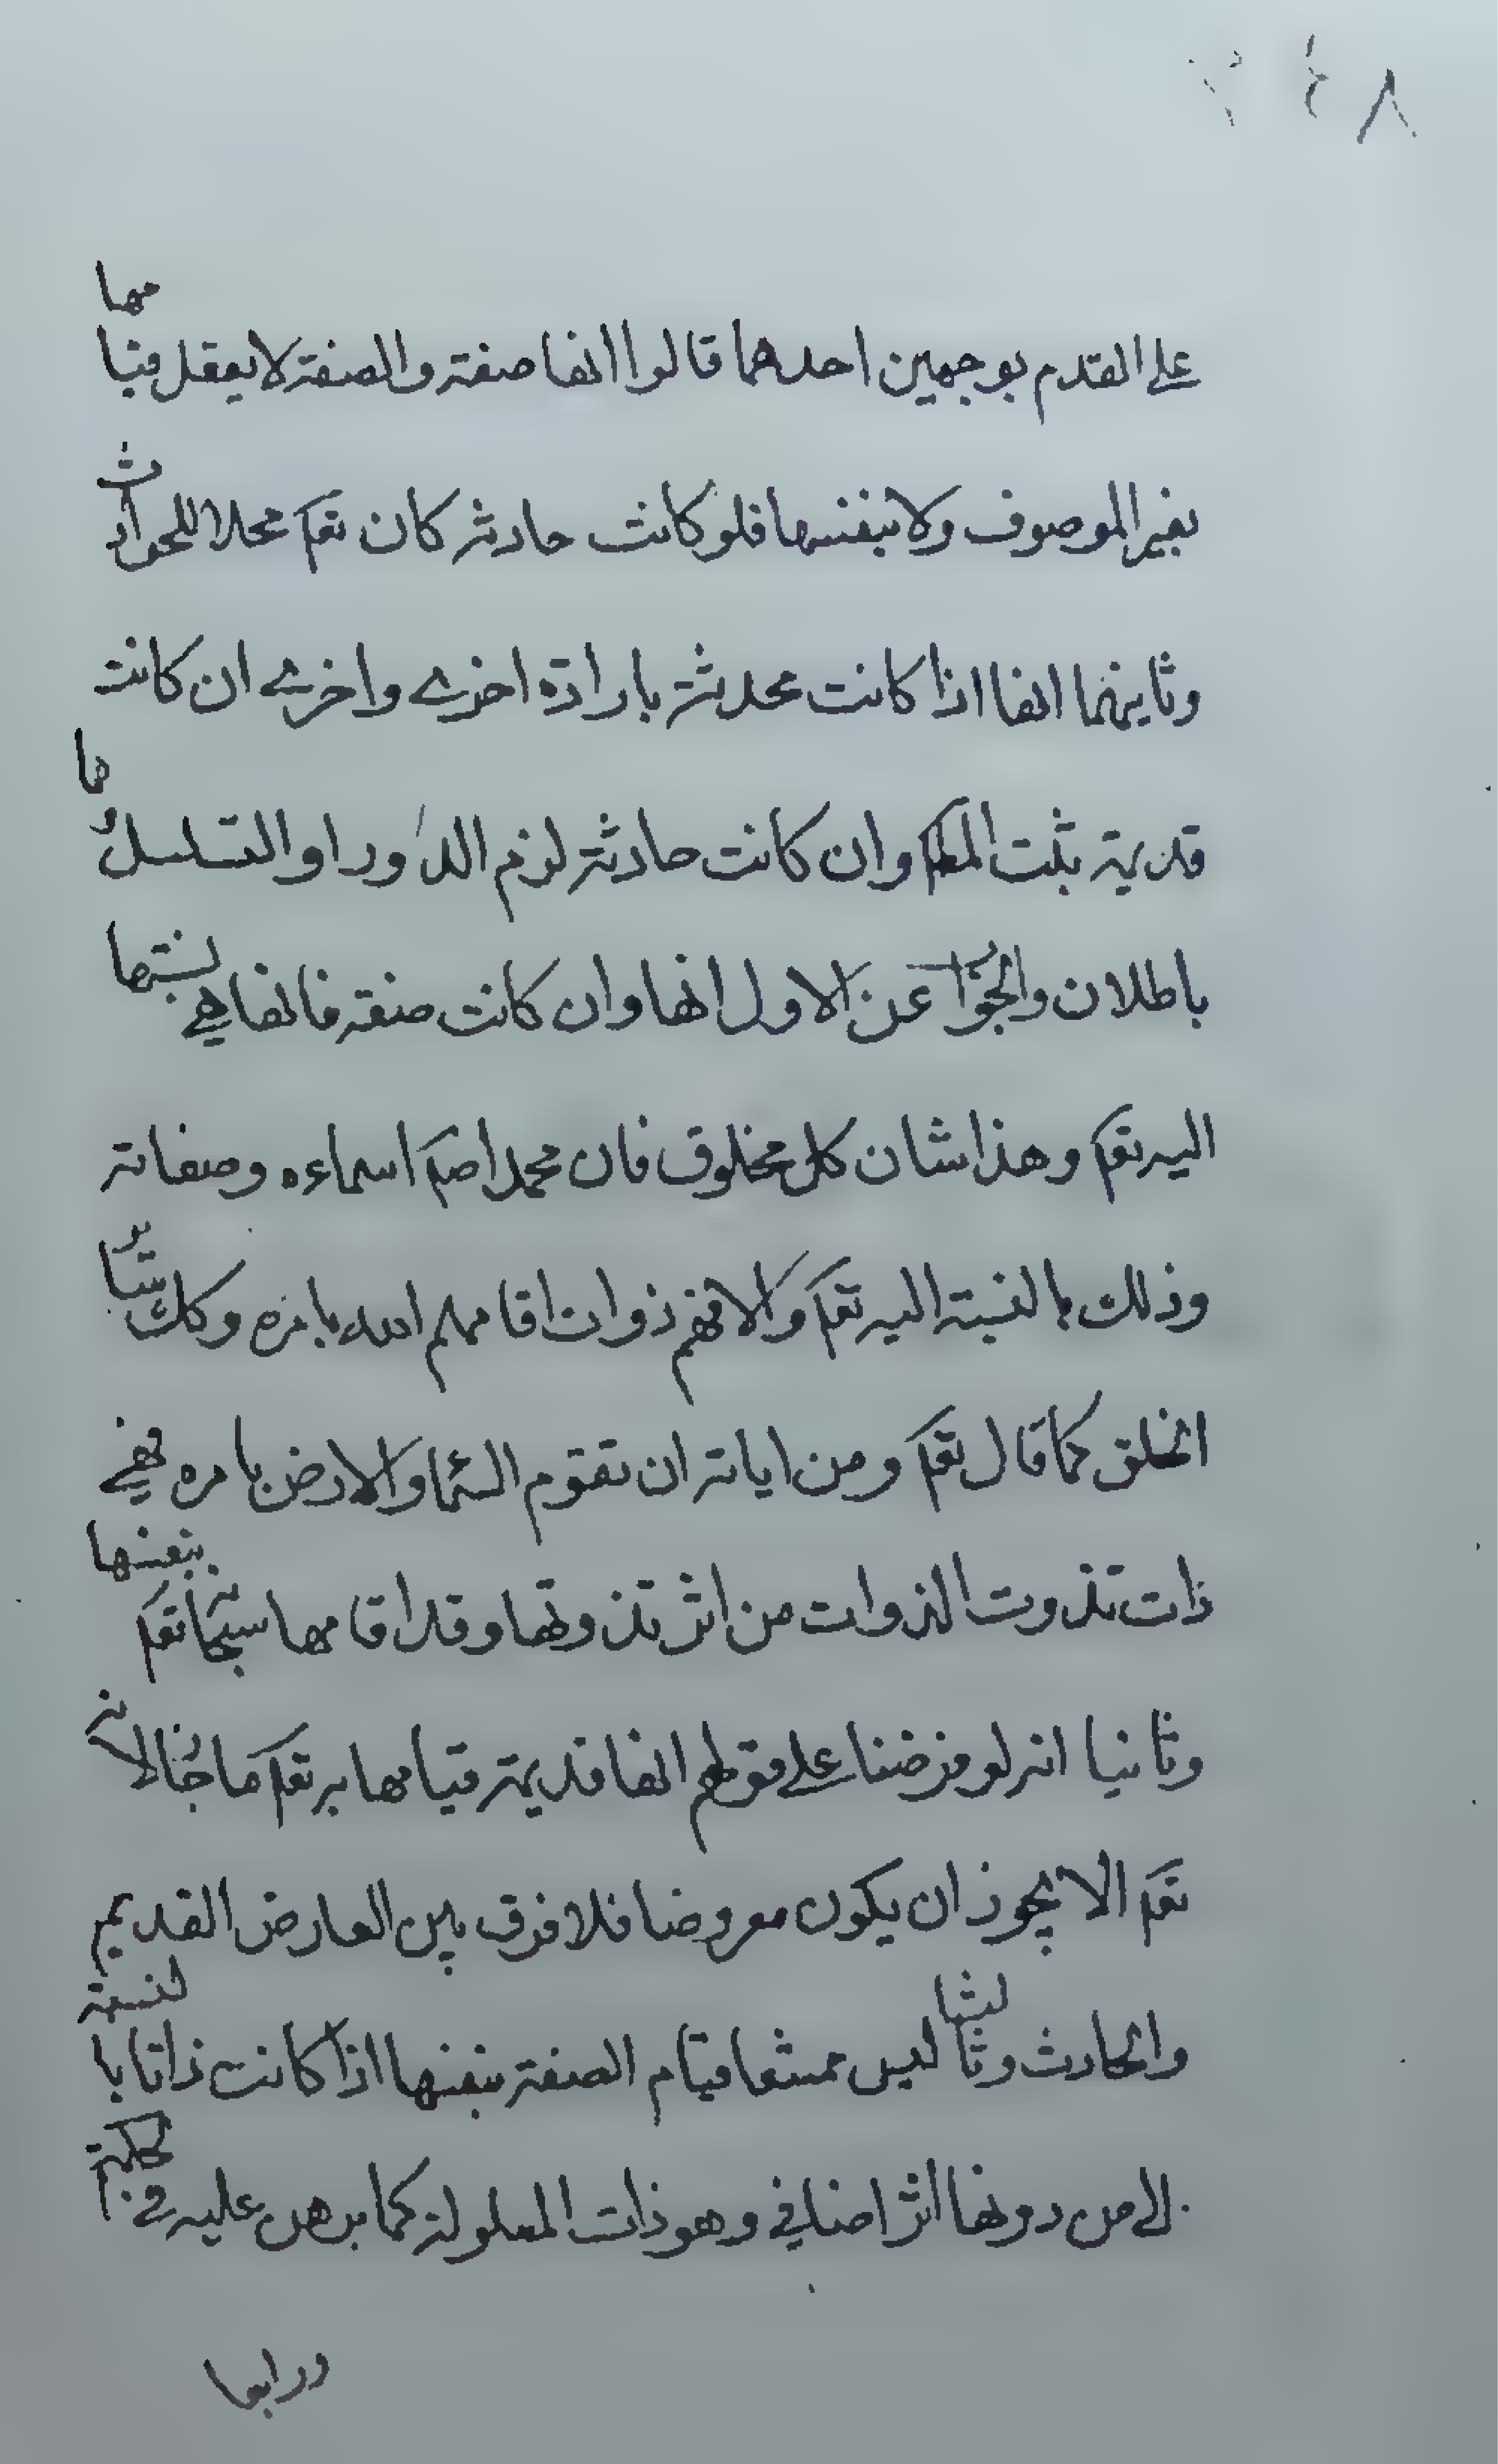 ٢٤٨
على القدم بوجهين احدهما قالوا انها صفة والصفة لا يعقل قيامها
بغير الموصوف ولا بنفسها فلو كانت حادثة كان تعم محلا للحوادث
وثانيهما انها اذا كانت محدثة بارادة اخرى واخرى ان كانت
قديمة ثبت المطم وان كانت حادثة لزم الدور او التسلسل وهما
باطلان والجواب عن الاول انها وان كانت صفة فانها هي لنسبتها
اليه تعم وهذا شان كل مخلوق فان محمدا صم اسماءه وصفاته
وذلك بالنسبة اليه تعم والا فهم ذوات اقامهم الله بامره وكك سائر
الخلق كما قال تعم ومن اياته ان تقوم السماء والارض بامره فهي
ذات تذوت الذوات من اثر تذوتها وقد اقامها سبحانه تعم بنفسها
وثانيا انه لو فرضنا على قولهم انها قديمة قيامها به تعم ما جاز لانه
تعم الا يجوز ان يكون معروضا فلا فرق بين العارض القديم
والحادث وثالثا ليس ممتنعا قيام الصفة بنفسها اذا كانت ذاتا بالنسبة
الى من دونها اثر اضافي وهو ذات المعلولة كما برهن عليه في الحكمة
ورابعا